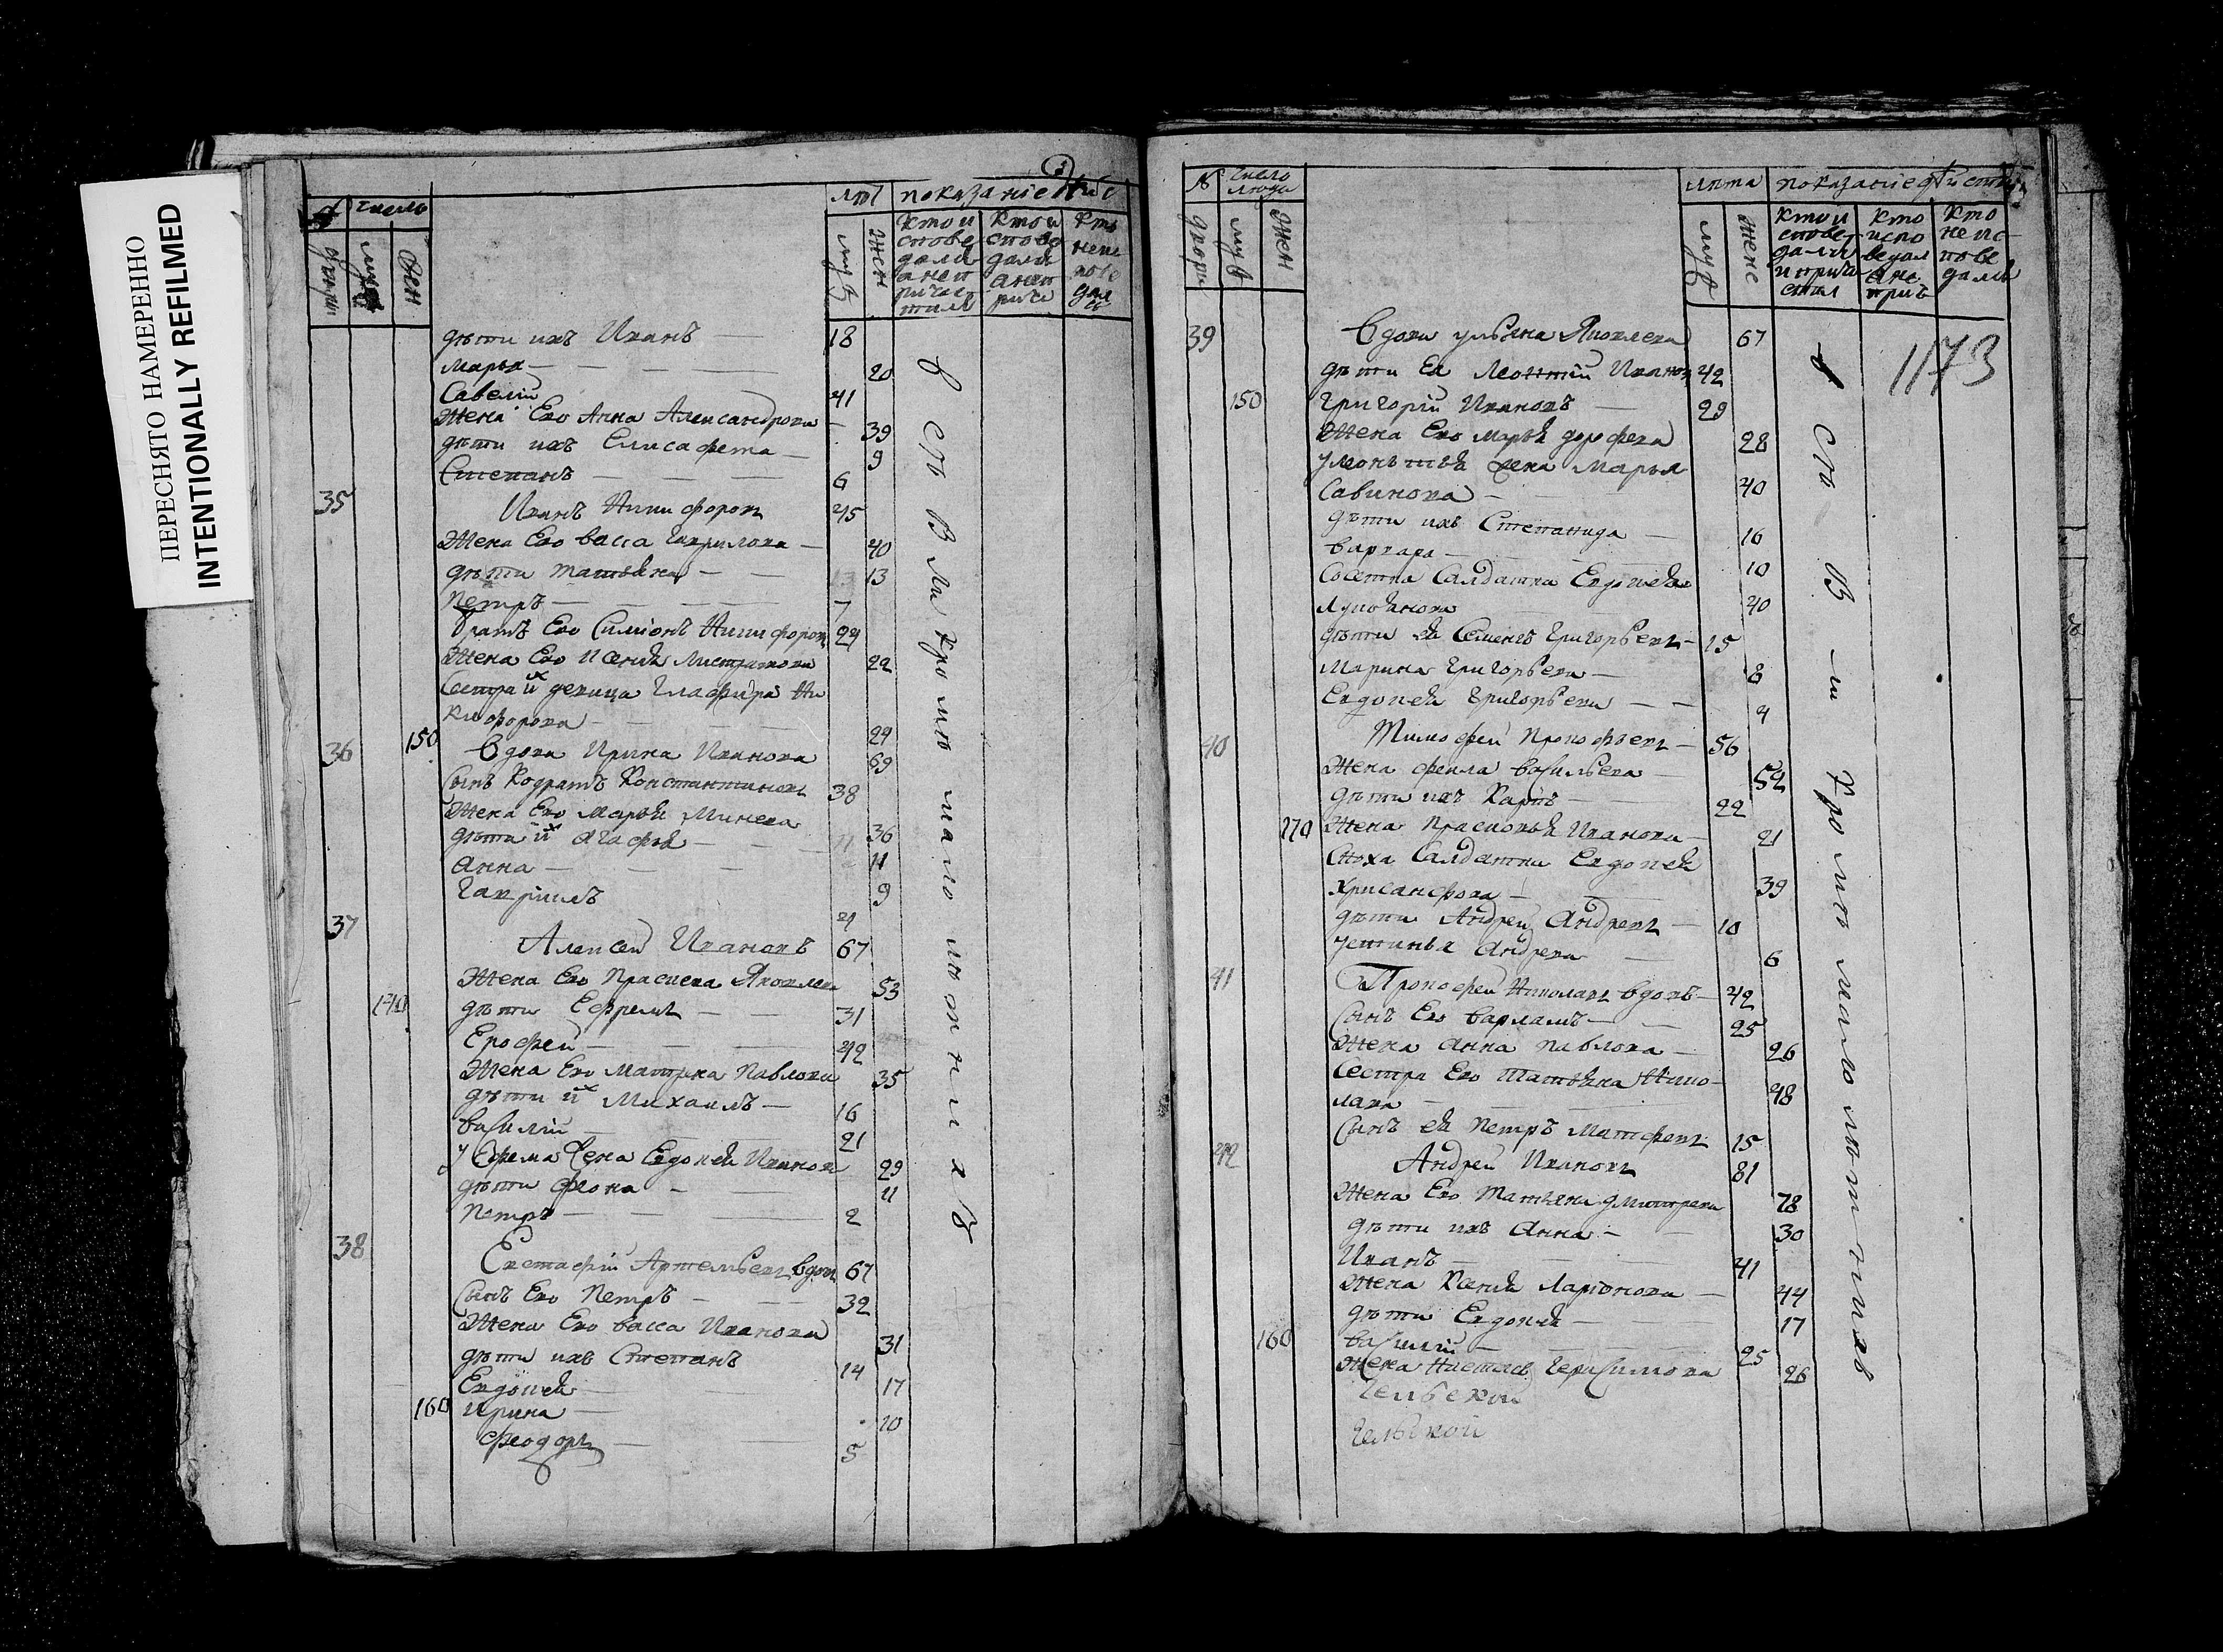 ПЕРЕСНЯТО НАМЕРЕННО
INTENTIONALLY REFILMED
число лѣт показаніе
двори муж жен муж жен
кто и спове дали а не п ричас тилс
кто и спове дали а не п ричи
кто неис пове дал съ
дѣти ихъ Иванъ — 18
Марья — 20
Савелій 41
Жена Его Анна Александрова — 39
дѣти ихъ Елисафета — 9
Степанъ — 6
35 Иванъ Никифоровъ 45
Жена Его васса Гаврилова — 40
дѣти Татьяна — 13
Петръ — 7
братъ Его Симіонъ Никифоровъ 24
Жена Его Ксенія 22
Сестра их девица Глафира Ни
кифорова — 29
36 150 Вдова Ирина Иванова 69
Сынъ Кодратъ Константиновъ 38
Жена Его Марья Минева 36
дѣти их Агафья — 11
Анна — 9
Гавріилъ 4
37 Алексей Ивановъ 67
Жена Его Прасковья Яковлева 53
170 дѣти Ефремъ — 31
Ерофей — 42
Жена Его Матрена Павлова 35
дѣти их Михаилъ — 16
василій — 21
у Ефрема жена Евдокия Иванова 29
дѣти Фіона — 11
Петръ — 2
38 Евстафій Артемьевъ вдовъ 67
Сынъ Его Петръ — 32
Жена Его васса Иванова 31
дѣти ихъ Степанъ 14
Евдокия — 17
160 Ирина — 10
Феодоръ — 5
№ число люди лѣта показаніе дѣйства
двори муж жен муж женс
кто и спове дали и прича стил
кто испо ведал а не прич
кто не ис пове дались
1173
39 Вдова ульяна Яковлева 67
дѣти Ея Леонтій Ивановъ 42
150 Григорій Ивановъ — 29
Жена Его Марья дорофева 28
у Леонтья жена Марья
Савинова — 40
дѣти ихъ Степанида — 16
варвара — 10
Салдатка Евдокея
Лукьянова 40
дѣти ея Семенъ Григорьевъ — 15
Марина Григорьева — 8
Евдокея Григорьева — 4
40 Тимофей Прокофьевъ — 56
Жена фекла васильева — 52
дѣти ихъ Карпъ — 22
170 Жена Прасковья Иванова — 21
Сноха Салдатка Евдокея
Хрисанфова — 39
дѣти Андрей Андревъ — 10
устинья Андрева — 6
41 Прокофей Николавъ вдовъ — 42
Сынъ Его варламъ — 25
Жена Анна Павлова — 26
Сестра Его татьяна Нико-
лава — 48
Сынъ ея Петръ Матфевъ 15
42 Андрей Ивановъ 81
Жена Его Татьяна дмитрева 78
дѣти ихъ Анна — 30
Иванъ — 41
Жена Ксенія Ларіонова — 44
дѣти Евдокея — 17
160 василій — 25
Жена Настася Герасимова 26